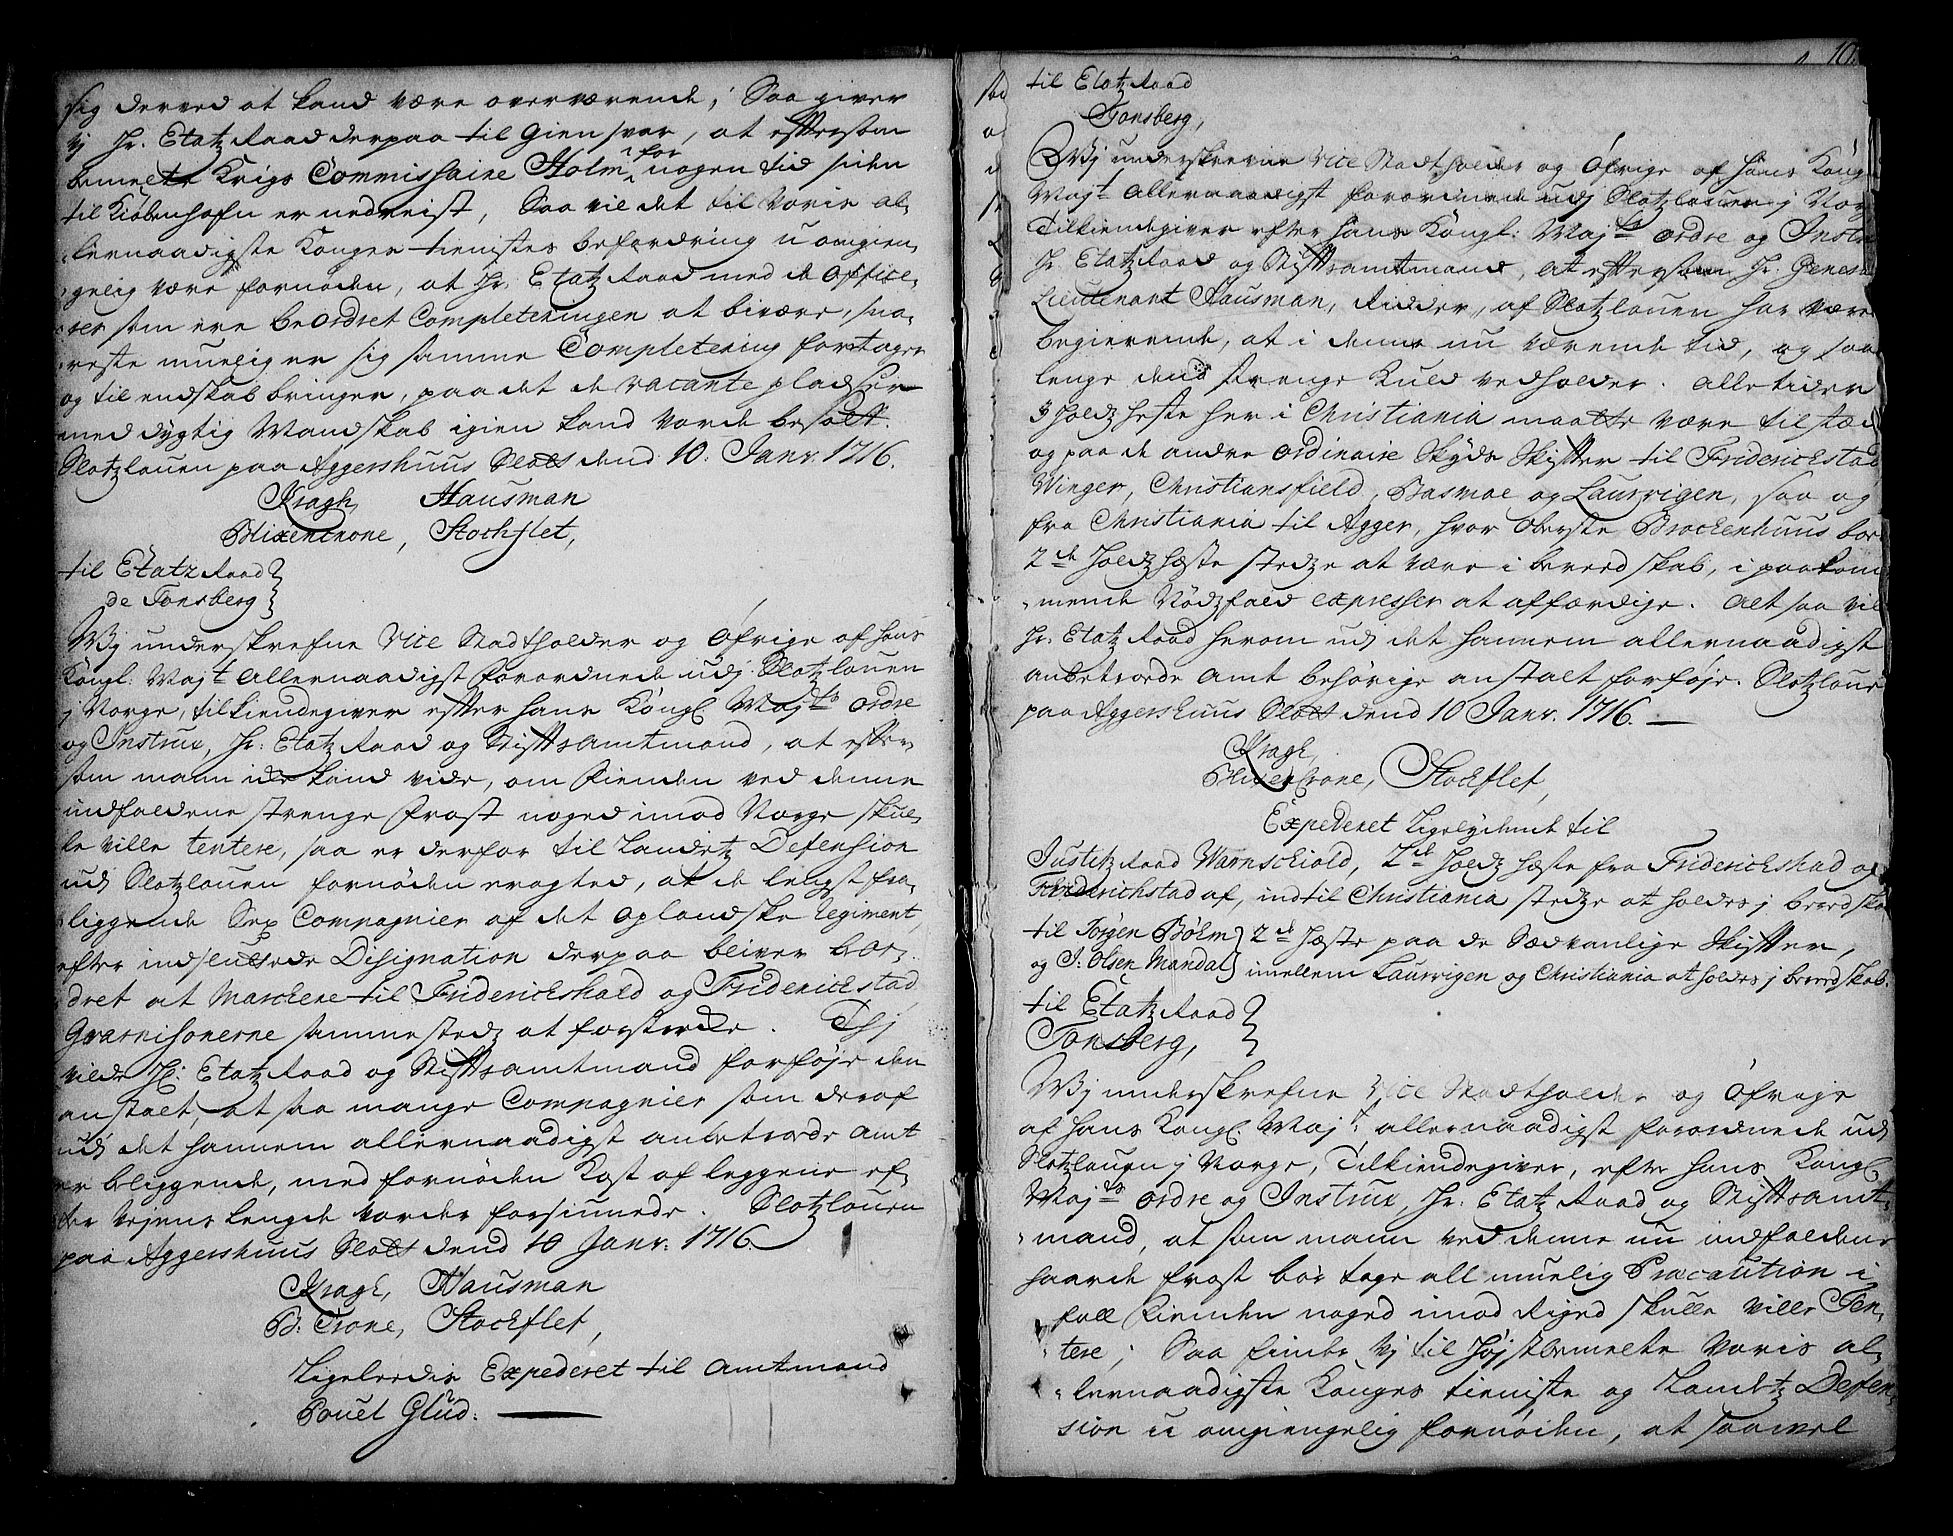 sig derved at kand være overværende, Saa giver
vj Hr. Etatz Raad derpaa til Giensvar, at efftersom
bemelte Krigs Commissaire Holm for nogen tid siden
til Kiøbenhafn er nedreist, Saa vil det til Voris al-
lernaadigste Konges tienistes befordring u-omgien-
gelig være fornøden, at Hr. Etatz Raad med de Office-
rer som ere beordret Completeringen at bivære, sna-
reste muelig er sig samme Completering fortager
og til endskab bringer, paa det de vacante pladser
med dygtig Mandskab igien kand vorde besatt.
Slotzlouen paa Aggershuus Slott dend 10. Janr. 1716.
Kragh, Hausman
Blixencrone, Stochflet,
til Etatz Raad
de Tonsberg
Wj underskrefne Vice Stadtholder og Øfrige af hans
Kongl: Maj.t Allernaadigst forordnede udj Slotzlouen
j Norge, tilkiendegiver effter hans Kongl Maj.ts ordre
og Instrux, Hr. Etatz Raad og Stifftsamtmand, at effter-
som mann icke kand vide, om Fienden ved denne
indfaldene strenge Frost noged imod Norge skul-
le ville tentere, saa er derfor til Landetz Defension
udj Slotzlouen fornøden eragted, at de leigst fra-
liggende Sex Compagnier af det Oplandske Regiment,
efter indsluttede Disignation derpaa bliver beor-
dret at Marchere til Friderichshald og Friderichstad
Guarnisonerne sammestedz at forstercke. Thj
vilde Hr: Etatz Raad og Stifftsamtmand forføje den
anstalt, at saa mange Compagnier som deraf
udj det hannem allernaadigst anbetroede Amt
er beliggende, med fornøden Kost af leggene ef-
ter Vejens lengde vorder forsiunede. Slotzlouen
paa Aggershuus Slott dend 10 Janr. 1716.
Kragh, Hausman
B. Crone, Stochflet,
Ligeleedis Expederet til Amtmand
Pouel Glud.
til Etatz Raad
Tonsberg,
Wj underskrevne Vice Stadtholder og Øfrige af hans Kong
Maj.t Allernaadigst forordnede udj Slotzlouen j Nor
Tilkiendegiver efter hans Kongl: Maj.ts ordre og Instr
Hr. Etatz Raad og Stifftsamtmand, at efftersom Hr. General
Lieutenant Hausman, Ridder, af Slotzlouen har være
begierende, at i denne nu værende tid, og saa
lenge dend strenge Kuld vedholder. alletider
3 Holdz heste her i Christiania maatte være tilstæd
og paa de andre ordinaire Skyds Skiffter til Friderichstad
Winger, Christiansfield, Basmoe og Laurvigen, saa og
fra Christiania til Agger, hvor Oberste Brockenhuus boe
2de Holdz hæste stedze at være i bereedskab, i paakom-
mende Nødzfald expresser at affærdige. Alt saa vil
Hr. Etatz Raad herom udj det hannem allernaadigst
anbetroede Amt behørige anstalt forføje. Slotzloue
paa Aggershuus Slott dend 10 Janr. 1716.
Kragh,
Blixencrone, Stochflet,
Expederet Ligelydende til
Justitz Raad Warnschiold, 2de Holdz hæste fra Friderichshad og
Friderichstad af, indtil Christiania stedze at holdes j bereedska
til Jørgen Bølm 2de hæste paa de Sædvanlige Skiffter,
og J. Olsen Mandal imellem Laurvigen og Christiania at holdes j bereedskab.
til Etatz Raad
Tonsberg,
Wj underskrefne Vice Stadtholder og Øfrige
af hans Kongl. Maj.t allernaadigst forordnede udj
Slotzlouen j Norge, Tilkiendegiver, efter hans Kongl
Maj.ts ordre og Instrux, Hr. Etatz Raad og Stifftsamt-
mand, at som mann ved denne nu indfaldene
haarde frost bør tage all muelig Præcaution i
fall Fienden noged imod Riged skulle ville Ten-
tere; Saa finde Vj til Højstbemelte Voris al-
lernaadigste Konges tieniste og Landetz Defen-
sion u-omgiengelig fornøden, at saavel